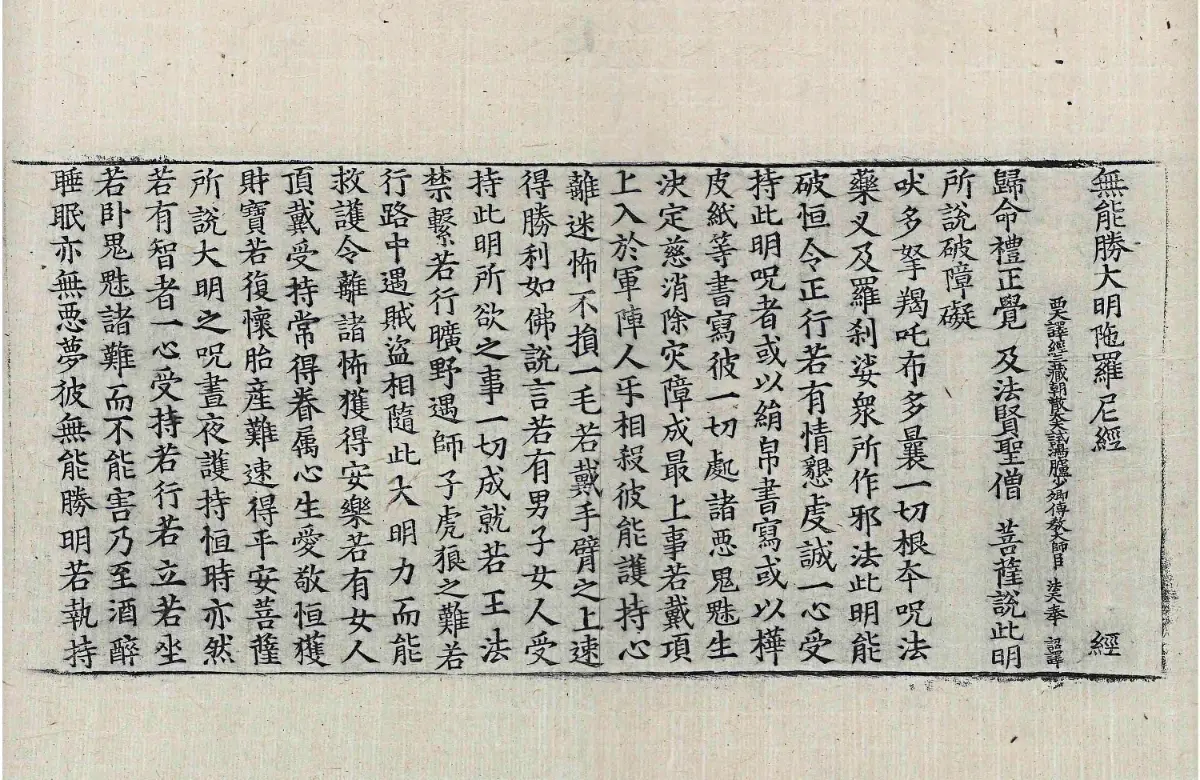 無能勝大明陁羅尼經 經
西天譯經三藏朝散大夫試鴻臚少卿傳教大師臣 法天奉 詔譯
歸命禮正覺 及法賢聖僧 菩薩說此明
所說破障礙
吠多拏羯吒布多曩一切根夲呪法
藥叉及羅刹娑衆所作邪法此明能
破恒令正行若有情懇虔誠一心受
持此明呪者或以絹帛書寫或以樺
皮紙等書寫彼一切處諸惡鬼魅生
決定慈消除灾障成最上事若戴項
上入於軍陣人乎相殺彼能護持心
離迷怖不損一毛若戴手臂之上速
得勝利如佛說言若有男子女人受
持此明所欲之事一切成就若王法
禁繫若行曠野遇師子虎狼之難若
行路中遇賊盜相隨此大明力而能
救護令離諸怖獲得安樂若有女人
頂戴受持常得眷屬心生愛敬恒獲
財寶若復懷胎產難速得平安菩薩
所說大明之呪晝夜護持恒時亦然
若有智者一心受持若行若立若坐
若卧鬼魅諸難而不能害乃至酒醉
睡眠亦無惡夢彼無能勝明若執持